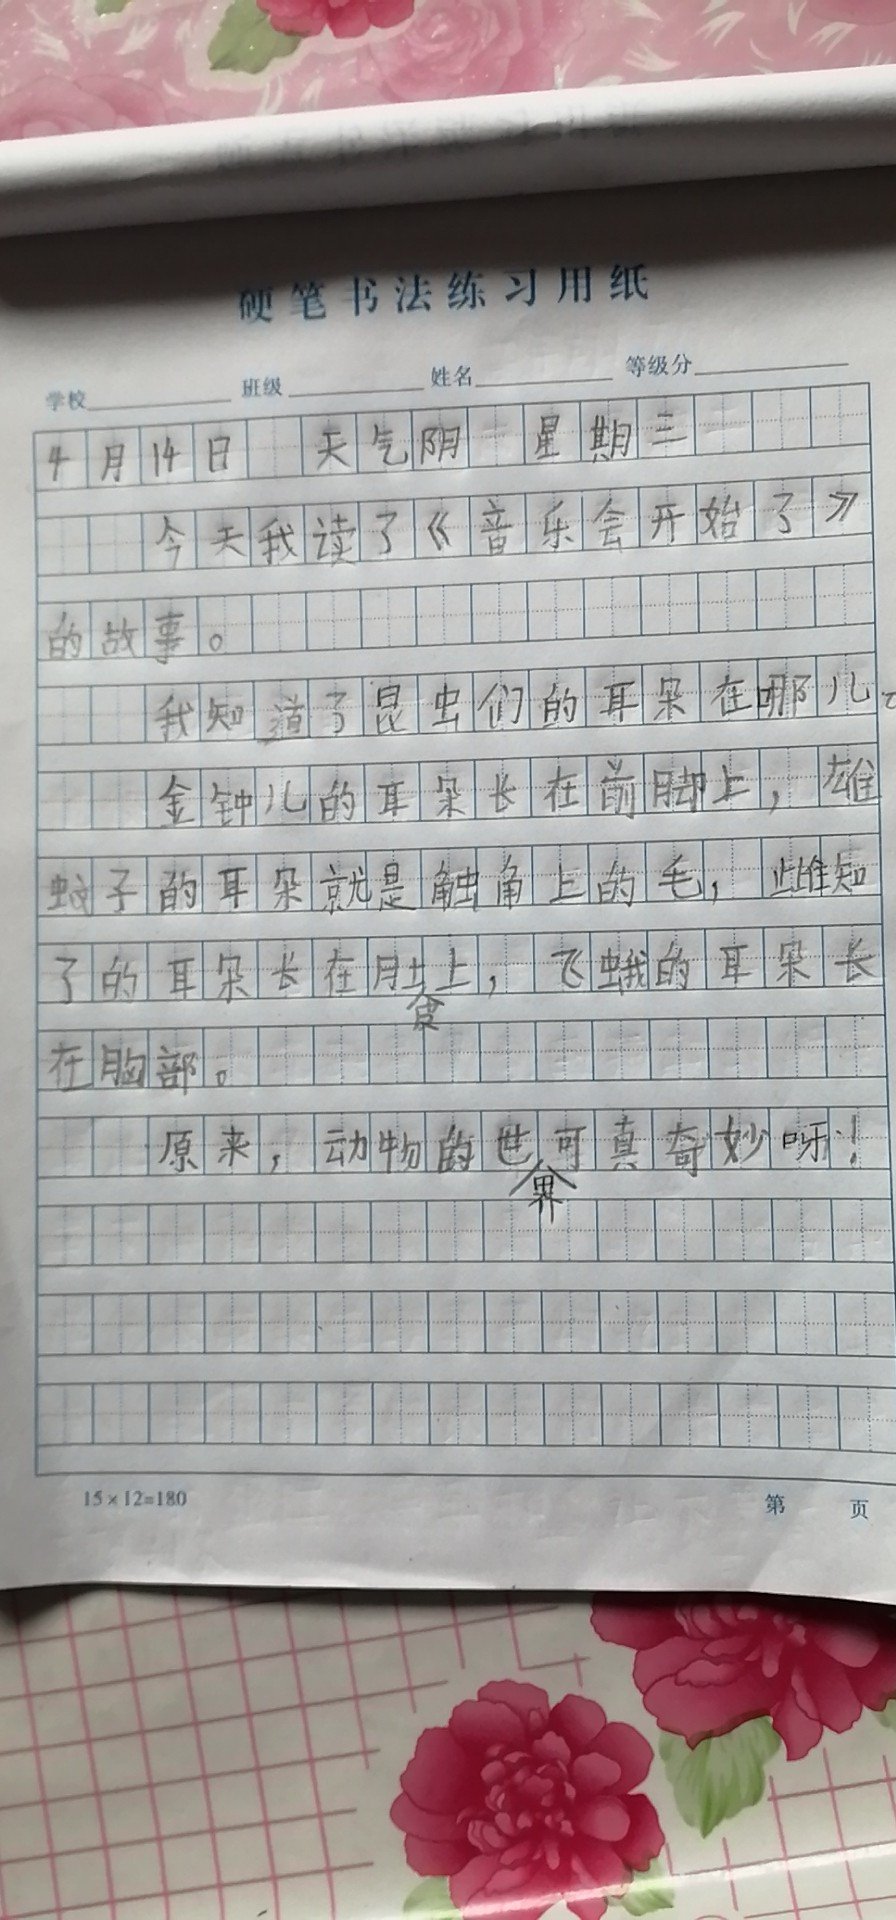 硬笔书法练习用纸
学校 班级 姓名 等级分
4月14日 天气阴 星期三
今天我读了《音乐会开始了》
的故事。
我知道了昆虫们的耳朵在哪儿。
金钟儿的耳朵长在前脚上，雄
蚊子的耳朵就是触角上的毛，雌知
了的耳朵长在肚皮上，飞蛾的耳朵长
在胸部。
原来，动物的世界可真奇妙呀！
15×12=180
第 页